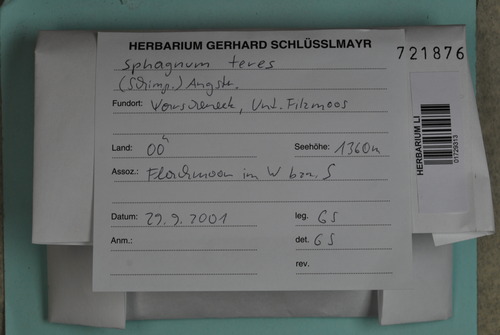 HERBARIUM GERHARD SCHLÜSSLMAYR
721876
Sphagnum teres
(Schimp.) Angstr.
Fundort: Wurscheneck, Unt. Filzmoos
Land: OÖ
Seehöhe: 1360m
Assoz.: Flachmoor im W bzw. S
Datum: 29.9.2001
leg. GS
Anm.:
det. GS
rev.
HERBARIUM LI
01729313